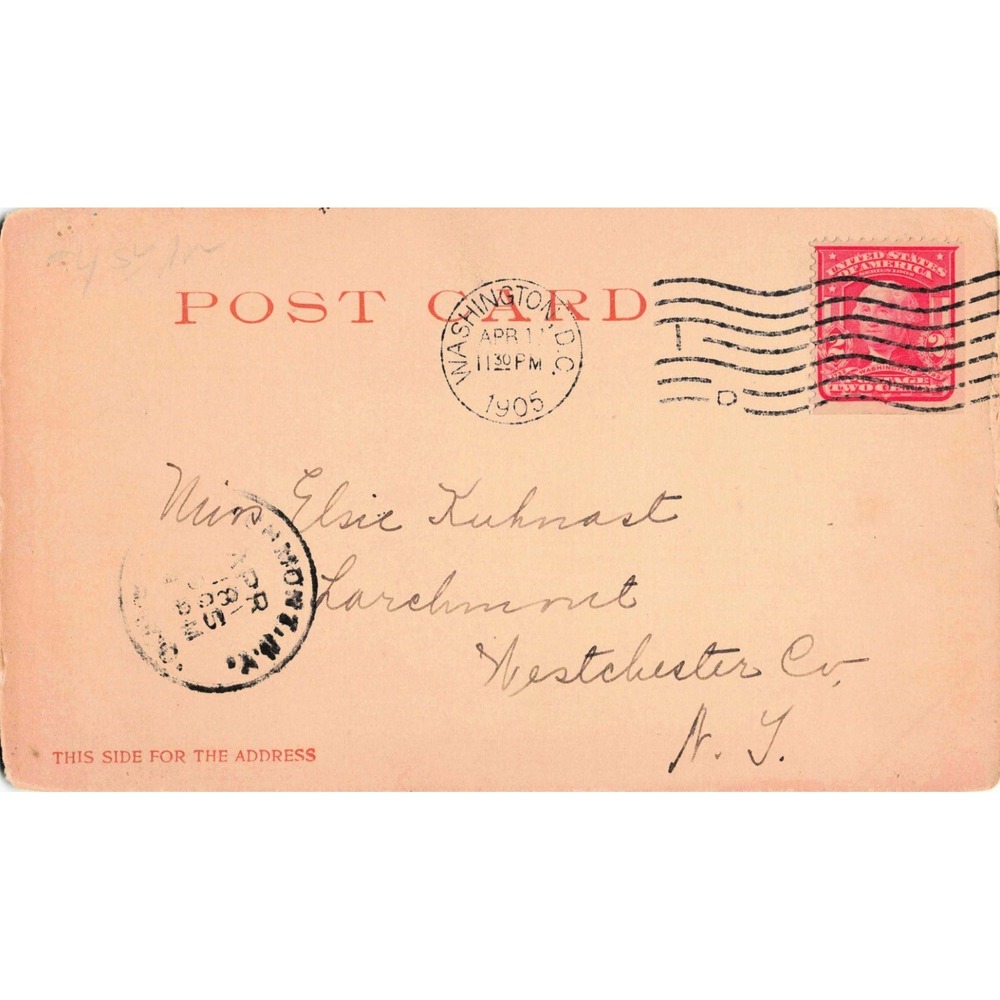 POST CARD
WASHINGTON, D.C.
APR 17
11 30 PM
1905
T
D
UNITED STATES
OF AMERICA
SERIES 1902
2 2
WASHINGTON
POSTAGE
TWO CENTS
Miss Elsie Kuhnast
Larchmont
Westchester Co,
N. Y.
LARCHMONT, N.Y.
APR
18
THIS SIDE FOR THE ADDRESS